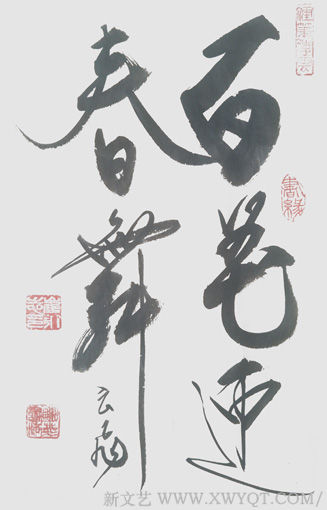 百花迎
春舞
云
書緣
新文艺 WWW.XWYQT.COM/